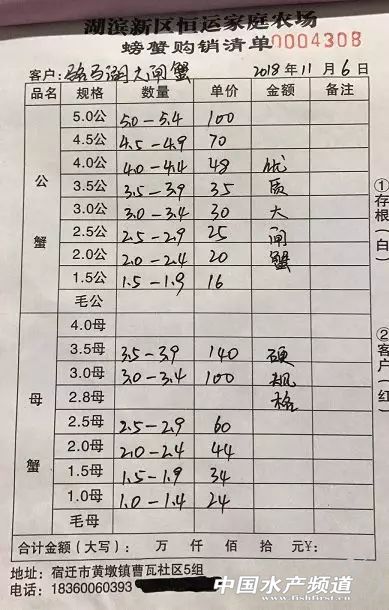 湖滨新区恒运家庭农场
螃蟹购销清单 0004308
客户: 骆马湖大闸蟹 2018年11月6日
品名 规格 数量 单价 金额 备注
公蟹
5.0公 5.0-5.4 100
4.5公 4.5-4.9 70
4.0公 4.0-4.4 48 优
3.5公 3.5-3.9 35 质
3.0公 3.0-3.4 30 大
2.5公 2.5-2.9 25 闸
2.0公 2.0-2.4 20 蟹
1.5公 1.5-1.9 16
毛公
母蟹
4.0母
3.5母 3.5-3.9 140 硬
3.0母 3.0-3.4 100 规
2.8母 格
2.5母 2.5-2.9 60
2.0母 2.0-2.4 44
1.5母 1.5-1.9 34
1.0母 1.0-1.4 24
毛母
合计金额(大写): 万 仟 佰 拾 元¥:
①存根(白)
②客户(红)
地址: 宿迁市黄墩镇曹瓦社区5组
电话: 18360060393
中国水产频道
www.fishfirst.cn